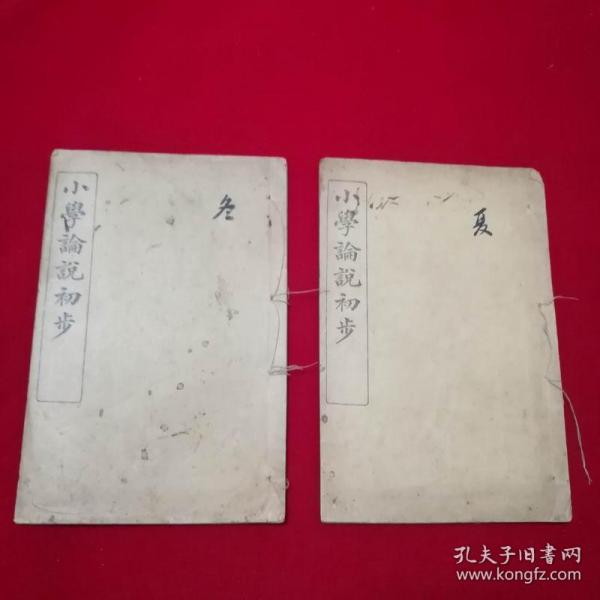 小學論說初步
冬
小學論說初步
夏
孔夫子旧书网
www.kongfz.com